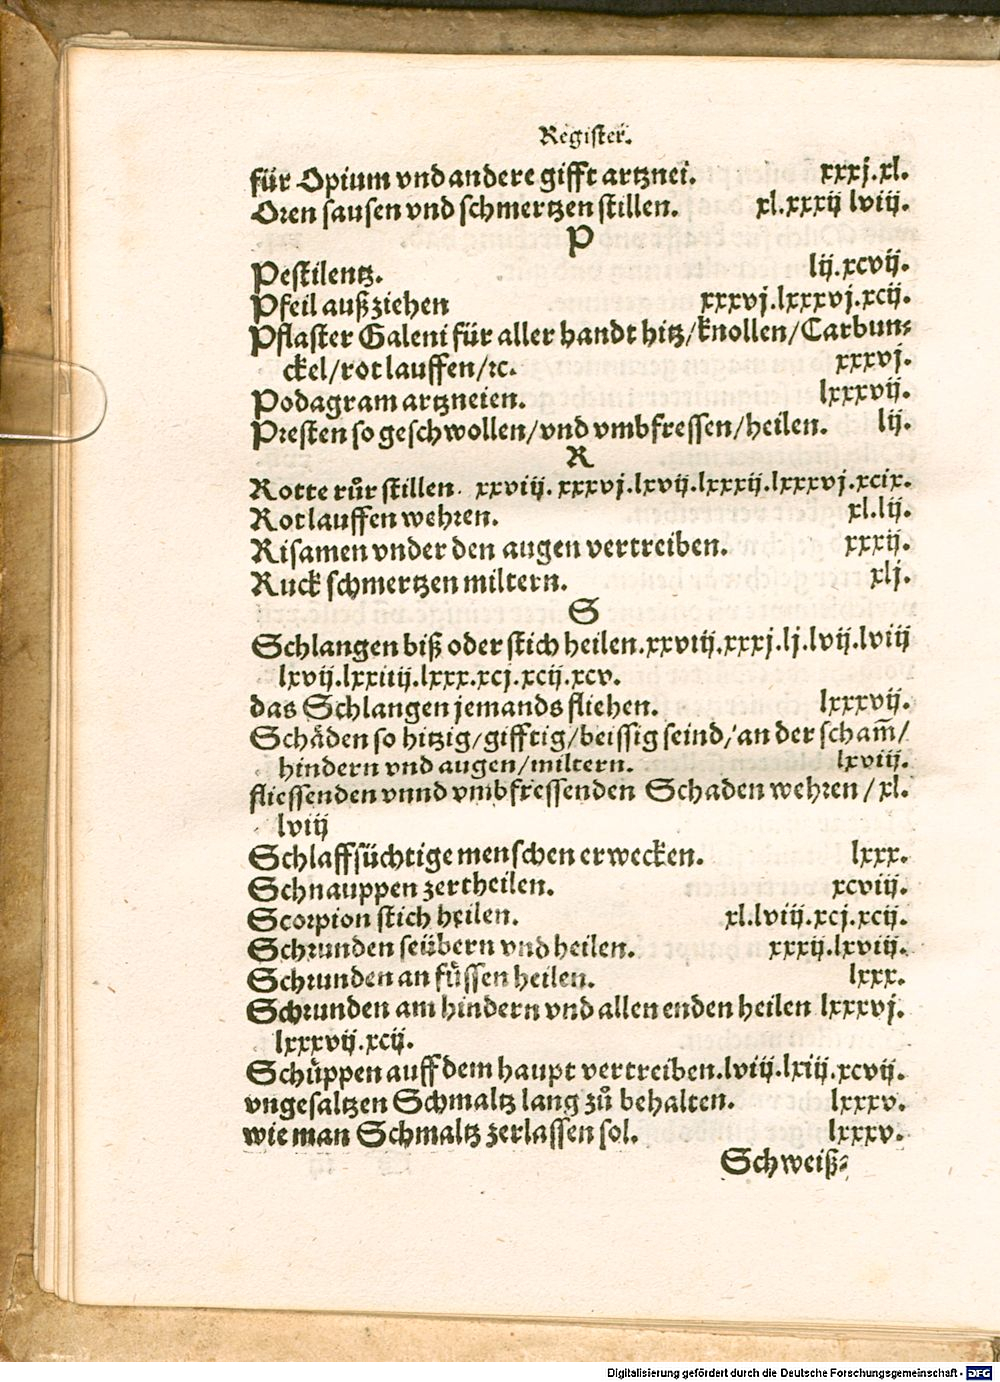 Register.
für Opium vnd andere gifft artznei. xxxj.xl.
Oren sausen vnd schmertzen stillen. xl.xxxij lviij.
P
Pestilentz. lij.xcvij.
Pfeil außziehen xxxvj.lxxxvj.xcij.
Pflaster Galeni für aller handt hitz/knollen/Carbun⸗
ckel/rotlauffen/ꝛc. xxxvj.
Podagram artzneien. lxxxvij.
Presten so geschwollen/vnd vmbfressen/heilen. lij.
R
Rotte růr stillen. xxviij. xxxvj.lxvij.lxxxij.lxxxvj.xcix.
Rotlauffen wehren. xl.lij.
Risamen vnder den augen vertreiben. xxxij.
Ruck schmertzen miltern. xlj.
S
Schlangen biß oder stich heilen.xxviij.xxxj.lj.lvij.lviij
lxvij.lxxiiij.lxxx.xcj.xcij.xcv.
das Schlangen jemands fliehen. lxxxvij.
Schäden so hitzig/gifftig/beissig seind/an der scham̅/
hindern vnd augen/miltern. lxviij.
fliessenden vnnd vmbfressenden Schaden wehren/xl.
lviij
Schlaffsüchtige menschen erwecken. lxxx.
Schnauppen zertheilen. xcviij.
Scorpion stich heilen. xl.lviij.xcj.xcij.
Schrunden seübern vnd heilen. xxxij.lxviij.
Schrunden an füssen heilen. lxxx.
Schrunden am hindern vnd allen enden heilen lxxxvj.
lxxxvij.xcij.
Schüppen auff dem haupt vertreiben.lviij.lxiij.xcvij.
vngesaltzen Schmaltz lang zů behalten. lxxxv.
wie man Schmaltz zerlassen sol. lxxxv.
Schweiß⸗
Digitalisierung gefördert durch die Deutsche Forschungsgemeinschaft - DFG